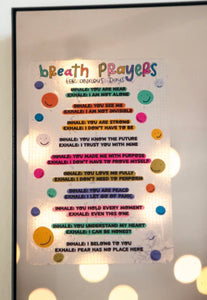 breath PRAYERS
for anxious days
INHALE: YOU ARE NEAR
EXHALE: I AM NOT ALONE
INHALE: YOU SEE ME
EXHALE: I AM NOT INVISIBLE
INHALE: YOU ARE STRONG
EXHALE: I DON'T HAVE TO BE
INHALE: YOU KNOW THE FUTURE
EXHALE: I TRUST YOU WITH MINE
INHALE: YOU MADE ME WITH PURPOSE
EXHALE: I DON'T HAVE TO PROVE MYSELF
INHALE: YOU LOVE ME FULLY
EXHALE: I DON'T NEED TO PERFORM
INHALE: YOU ARE PEACE
EXHALE: I LET GO OF PANIC
INHALE: YOU HOLD EVERY MOMENT
EXHALE: EVEN THIS ONE
INHALE: YOU UNDERSTAND MY HEART
EXHALE: I CAN BE HONEST
INHALE: I BELONG TO YOU
EXHALE: FEAR HAS NO PLACE HERE